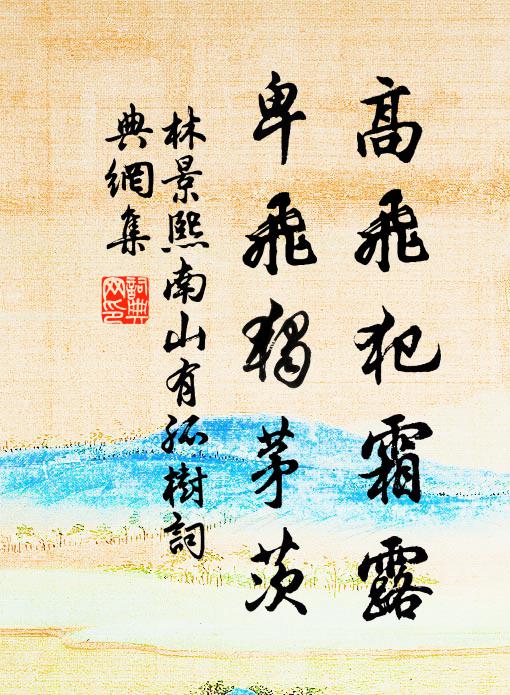 高飛犯霜露
卑飛觸茅茨
林景熙南山有孤樹詞
典網集
詞典
网印